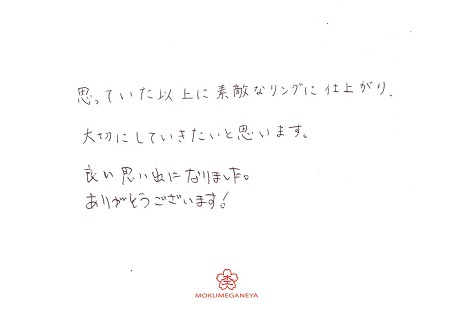 思っていた以上に素敵なリングに仕上がり、
大切にしていきたいと思います。
良い思い出になりました。
ありがとうございます！
MOKUMEGANEYA